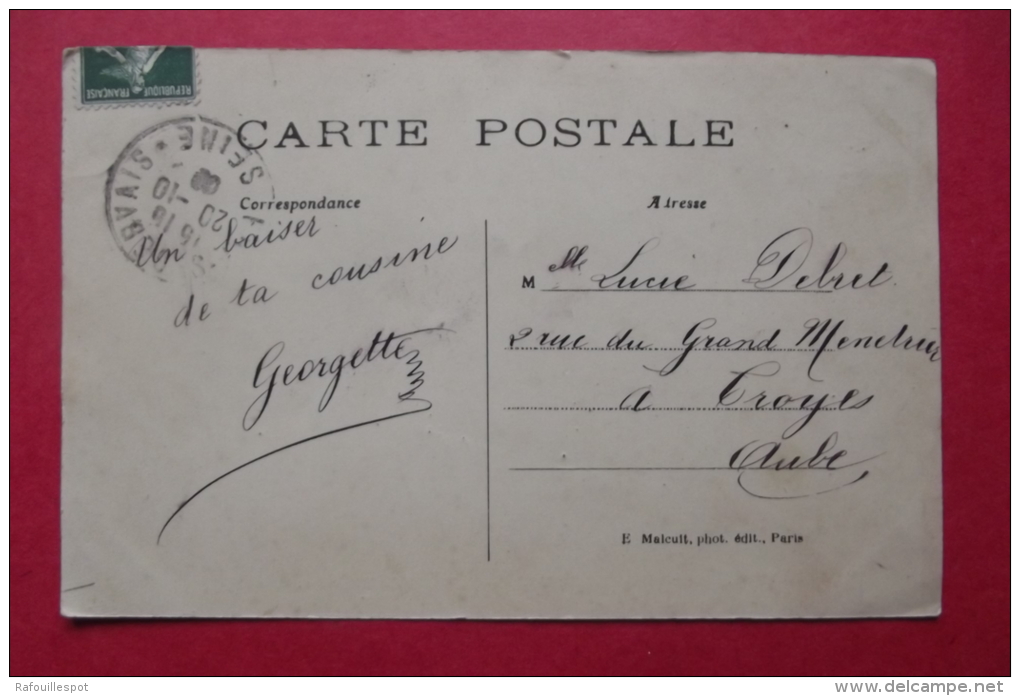 REPUBLIQUE FRANÇAISE
CARTE POSTALE
SEINE
20 -10
Correspondance
Un baiser
de ta cousine
Georgette
A resse
M lle Lucie Debret
2 rue du Grand
à Troyes
Aube
E Malcuit, phot. édit., Paris
Rafouillespot
www.delcampe.net